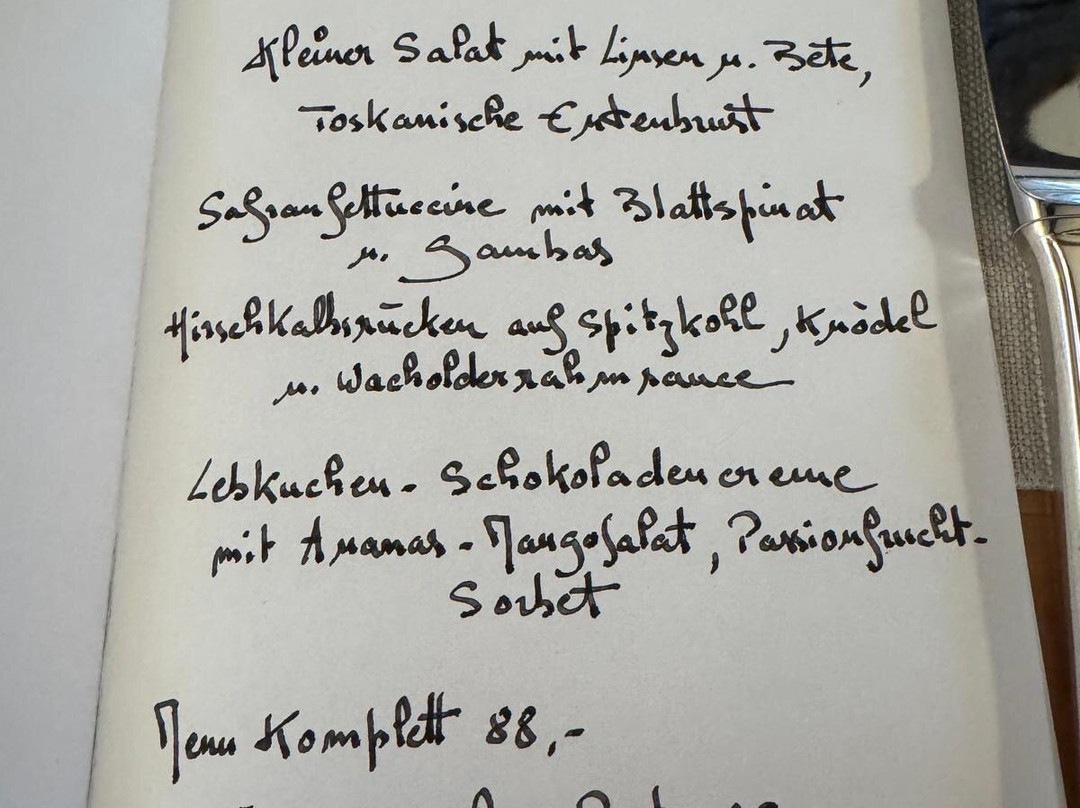 Kleiner Salat mit Linsen u. Bete,
Toskanische Entenbrust
Safranfettuccine mit Blattspinat
u. Gambas
Hirschkalbsrücken auf Spitzkohl, Knödel
u. Wacholderrahmsauce
Lebkuchen - Schokoladencreme
mit Ananas - Mangosalat, Passionfrucht-
Sorbet
Menu Komplett 88,-